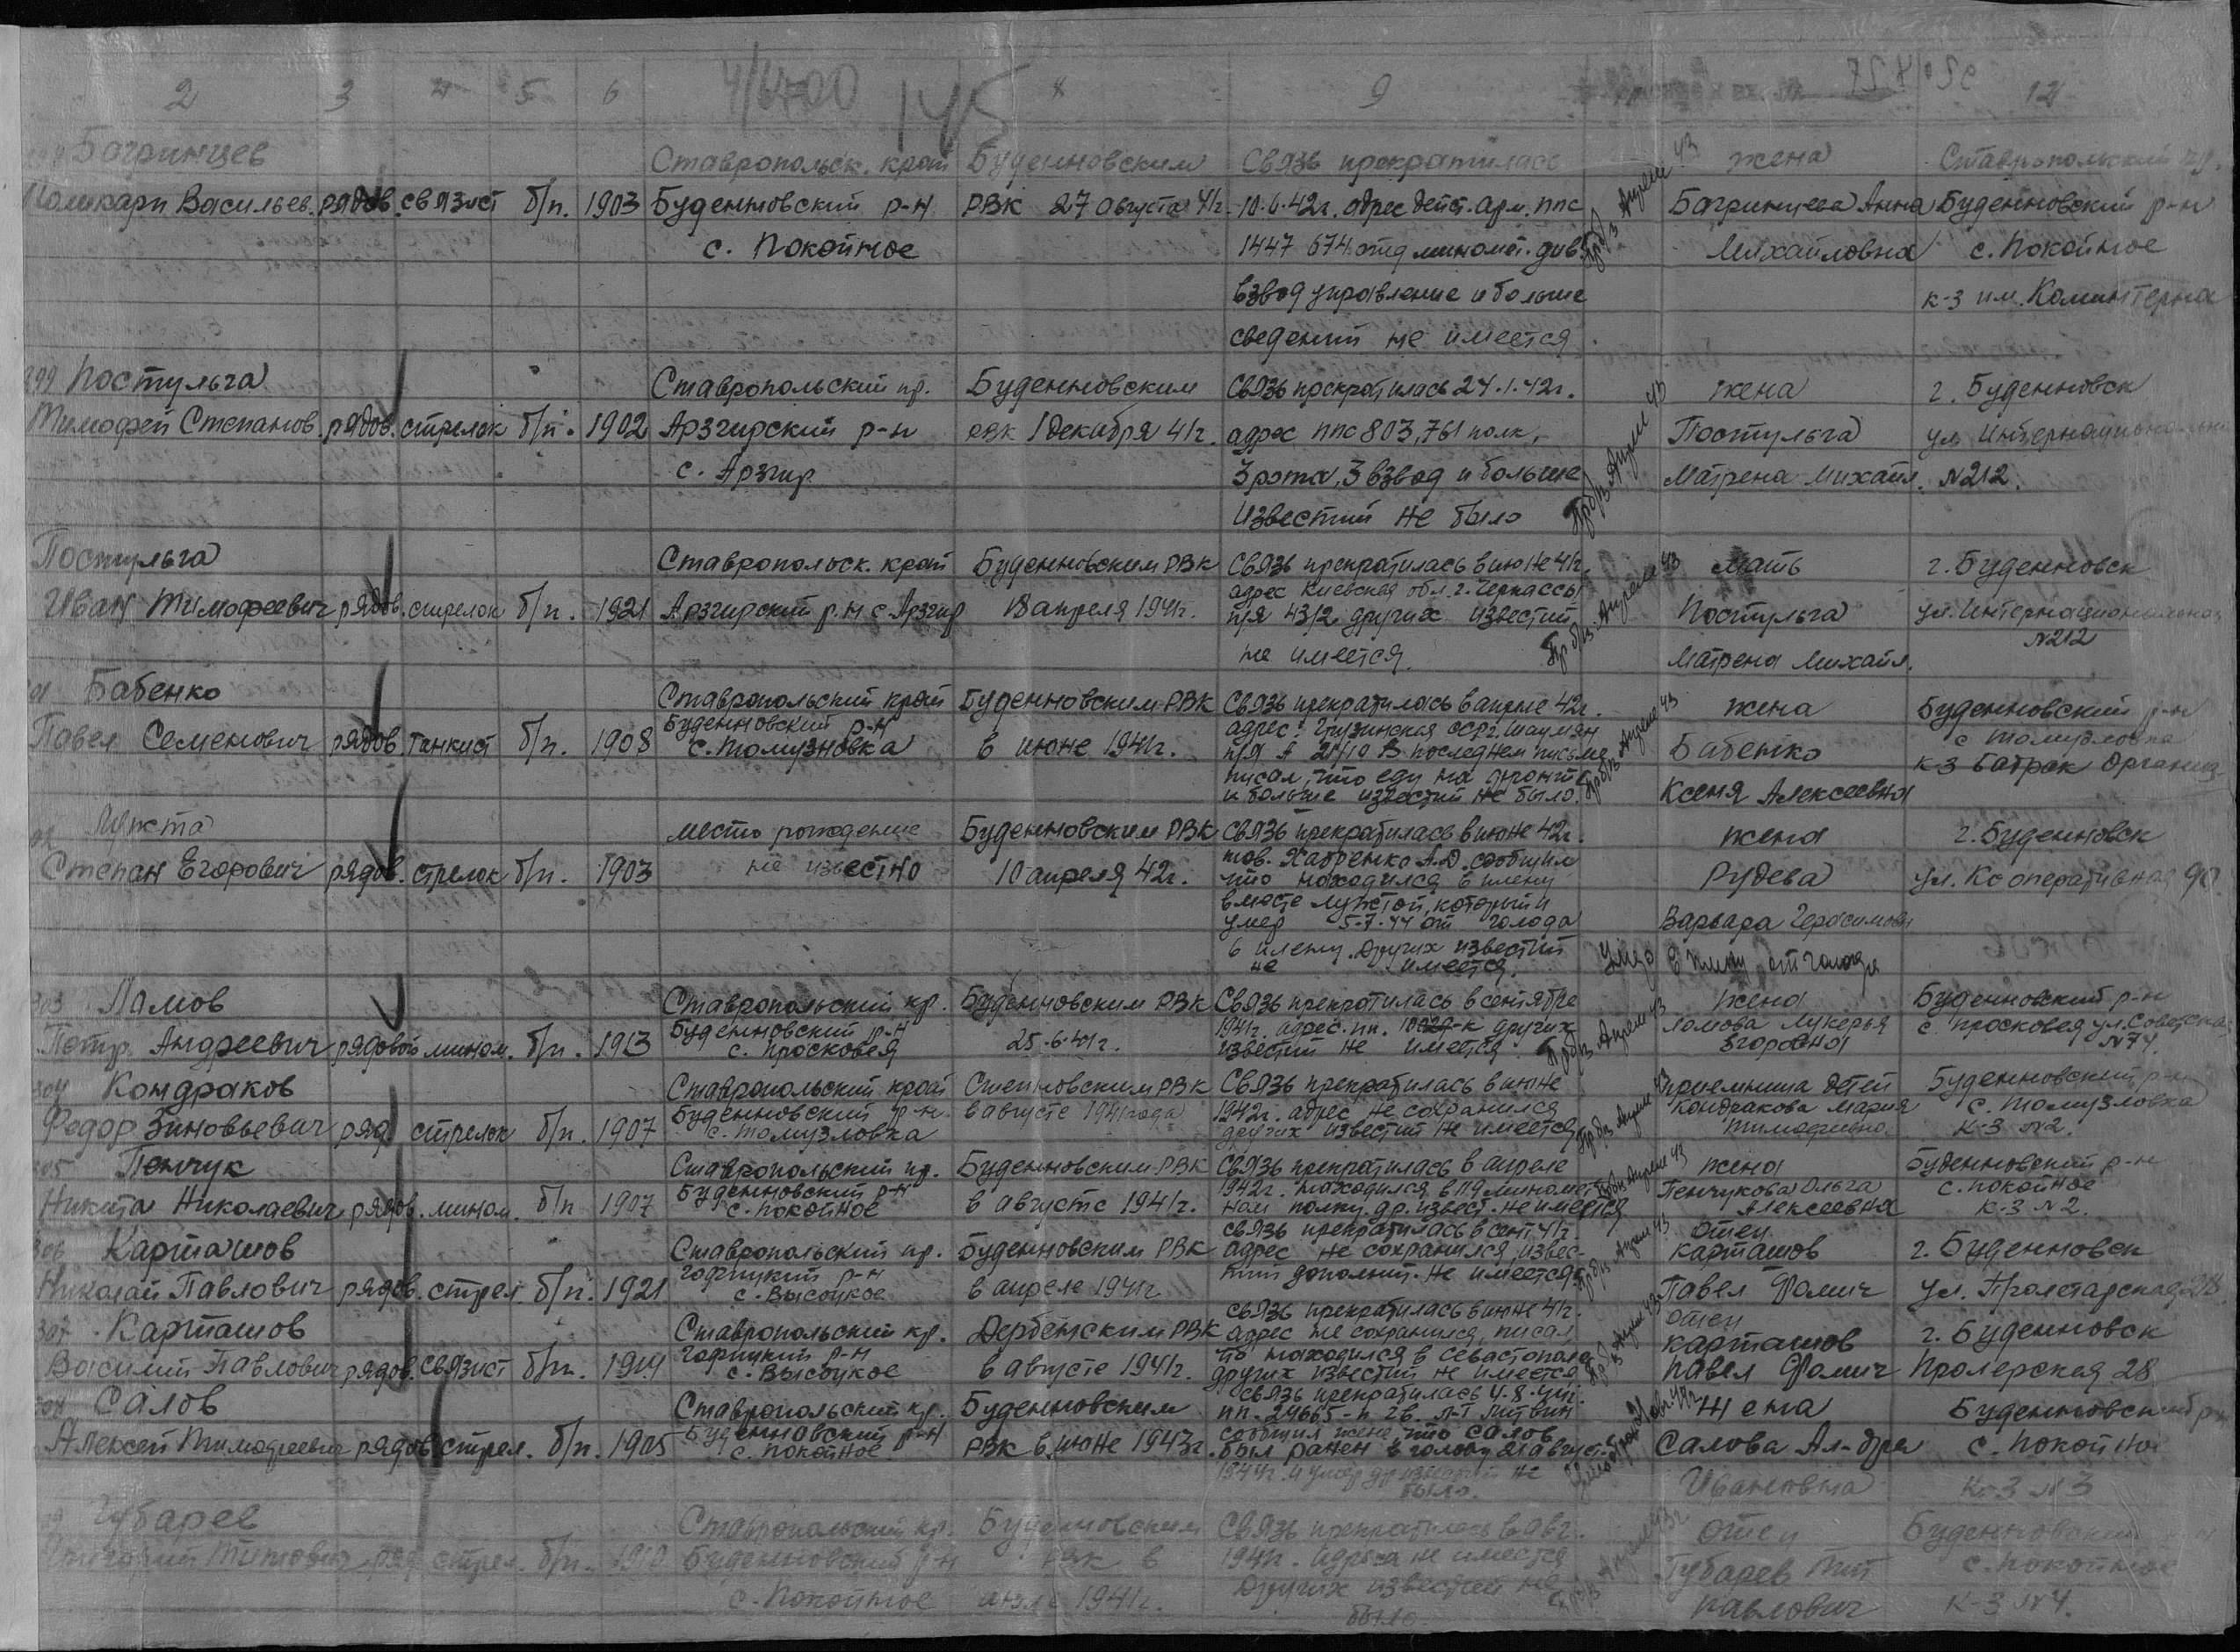 2 3 4 5 6 4/6400 145 9 12
Багринцев
Поликарп Васильев. рядов. связист б/п. 1903
Ставропольск. край
Буденновский р-н
с. Покойное
Буденновским
РВК 27 августа 41г.
Связь прекратилась
10.6.42г. адрес дейст. арм. ппс
1447 674 отд миномет. див.
взвод управление и больше
сведений не имеется
жена
Багринцева Анна
Михайловна
Ставропольский кр.
Буденновский р-н
с. Покойное
к-з им. Коминтерна
899 Постульга
Тимофей Степанов. рядов. стрелок б/п. 1902
Ставропольский кр.
Арзгирский р-н
с. Арзгир
Буденновским
РВК 1 декабря 41г.
Связь прекратилась 24.1.42г.
адрес ппс 803, 761 полк,
3 рота, 3 взвод и больше
известий не было
Пр. б/з Апреле 43
жена
Постульга
Матрена Михайл.
г. Буденновск
ул. Интернациональн
N 212.
Постульга
Иван Тимофеевич рядов. стрелок б/п. 1921
Ставропольск. край
Арзгирский р-н с Арзгир
Буденновским РВК
18 апреля 1941г.
Связь прекратилась в июне 41г.
адрес Киевская обл. г. Черкассы
п/я 43/2 других известий
не имеется.
Пр. б/з. Апреле 43
мать
Постульга
Матрена Михайл.
г. Буденновск
ул. Интернациональная
N 212
Бабенко
Павел Семенович рядов. танкист б/п. 1908
Ставропольский край
Буденновский р-н
с. Томузновка
Буденновским РВК
в июне 1941г.
Связь прекратилась в апреле 42г.
адрес: Грузинская ССР г. Шаумян
п/я 21/10 В последнем письме
писал, что еду на фронт
и больше известий не было.
Пр. б/з Апреле 43
жена
Бабенко
Ксеня Алексеевна
Буденновский р-н
с Томузловка
к-з Батрак Организ-
Лужта
Степан Егорович рядов. стрелок б/п. 1903
место рождение
не известно
Буденновским РВК
10 апреля 42г.
Связь прекратилась в июне 42г.
тов. Хабренко А.Д. сообщил
что находился в плену
вместе Лужтой, который
умер 5-7-44 от голода
в плену. Других известий
не имеется.
Умер в плену от голода
жена
Рудева
Варвара Герасимовн
г. Буденновск
ул. Кооперативная 90
903 Ламов
Петр. Андреевич рядовой мином. б/п. 1913
Ставропольский кр.
Буденновский р-н
с. Просковея
Буденновским РВК
25.6.41г.
Связь прекратилась в сентябре
1941г. адрес. пп. 1029-к других
известий не имеется.
Пр. б/з Апреле 43
жена
Ломова Лукерья
Егоровна
Буденновский р-н
с. Просковея ул. Советска
N 74.
304 Кондраков
Федор. Зиновьевич ряд. стрелок б/п. 1907
Ставропольский край
Буденновский р-н.
с. Томузловка
Степновским РВК
в августе 1941 года
Связь прекратилась в июне
1942г. адрес не сохранился
других известий не имеется
Пр. б/з Апреле 43
приемница детей
Кондракова Мария
Тимофеевна
Буденновский р-н
с. Томузловка
К-З N 2.
305 Пенчук
Никита Николаевич рядов. мином. б/п 1907
Ставропольский кр.
Буденновский р-н
с. Покойное
Буденновским РВК
в августе 1941г.
Связь прекратилась в апреле
1942г. находился в 119 миномет
ном полку. др. извест. не имеется
Пр. б/з Апреле 43
жена
Пенчукова Ольга
Алексеевна
Буденновский р-н
с. Покойное
к-з N 2.
306 Карташов
Николай Павлович рядов. стрел. б/п. 1921
Ставропольский кр.
Гофицкий р-н
с. Высоцкое
Буденновским РВК
в апреле 1941г
связь прекратилась в сент 41г.
адрес не сохранился, извес-
тий дополнит. не имеется
Пр. б/з Апреле 43
отец
Карташов
Павел Фомич
г. Буденновск
ул. Пролетарская 28
307 Карташов
Василий Павлович рядов. связист б/п. 1914
Ставропольский кр.
Гофицкий р-н
с. Высоцкое
Дербетским РВК
в августе 1941г.
связь прекратилась в июне 41г.
адрес не сохранился, писал
что находился в Севастополе
других известий не имеется
отец
Карташов
Павел Фомич
г. Буденновск
Пролерская 28
Салов
Алексей Тимофеевич рядов стрел. б/п. 1905
Ставропольский кр.
Буденновский р-н
с. Покойное
Буденновским
РВК в июне 1943г.
связь прекратилась 4.8.44г.
пп. 24665-п гв. л-т Литвин
сообщил жене что Салов
был ранен в голову 21 август.
1944г. и умер др известий не
было.
Жена
Салова Ал-дра
Ивановна
Буденновский р-н
с. Покойное
К-З N 3
Губарев
Григорий Титович ряд стрел. б/п. 1910
Ставропольский кр.
Буденновский р-н
с. Покойное
Буденновским
РВК в
июле 1941г.
Связь прекратилась в авг.
1941г. Адреса не имеется
Других известий не
было
отец
Губарев Тит
Павлович
Буденновский
с. Покойное
К-З N 4.